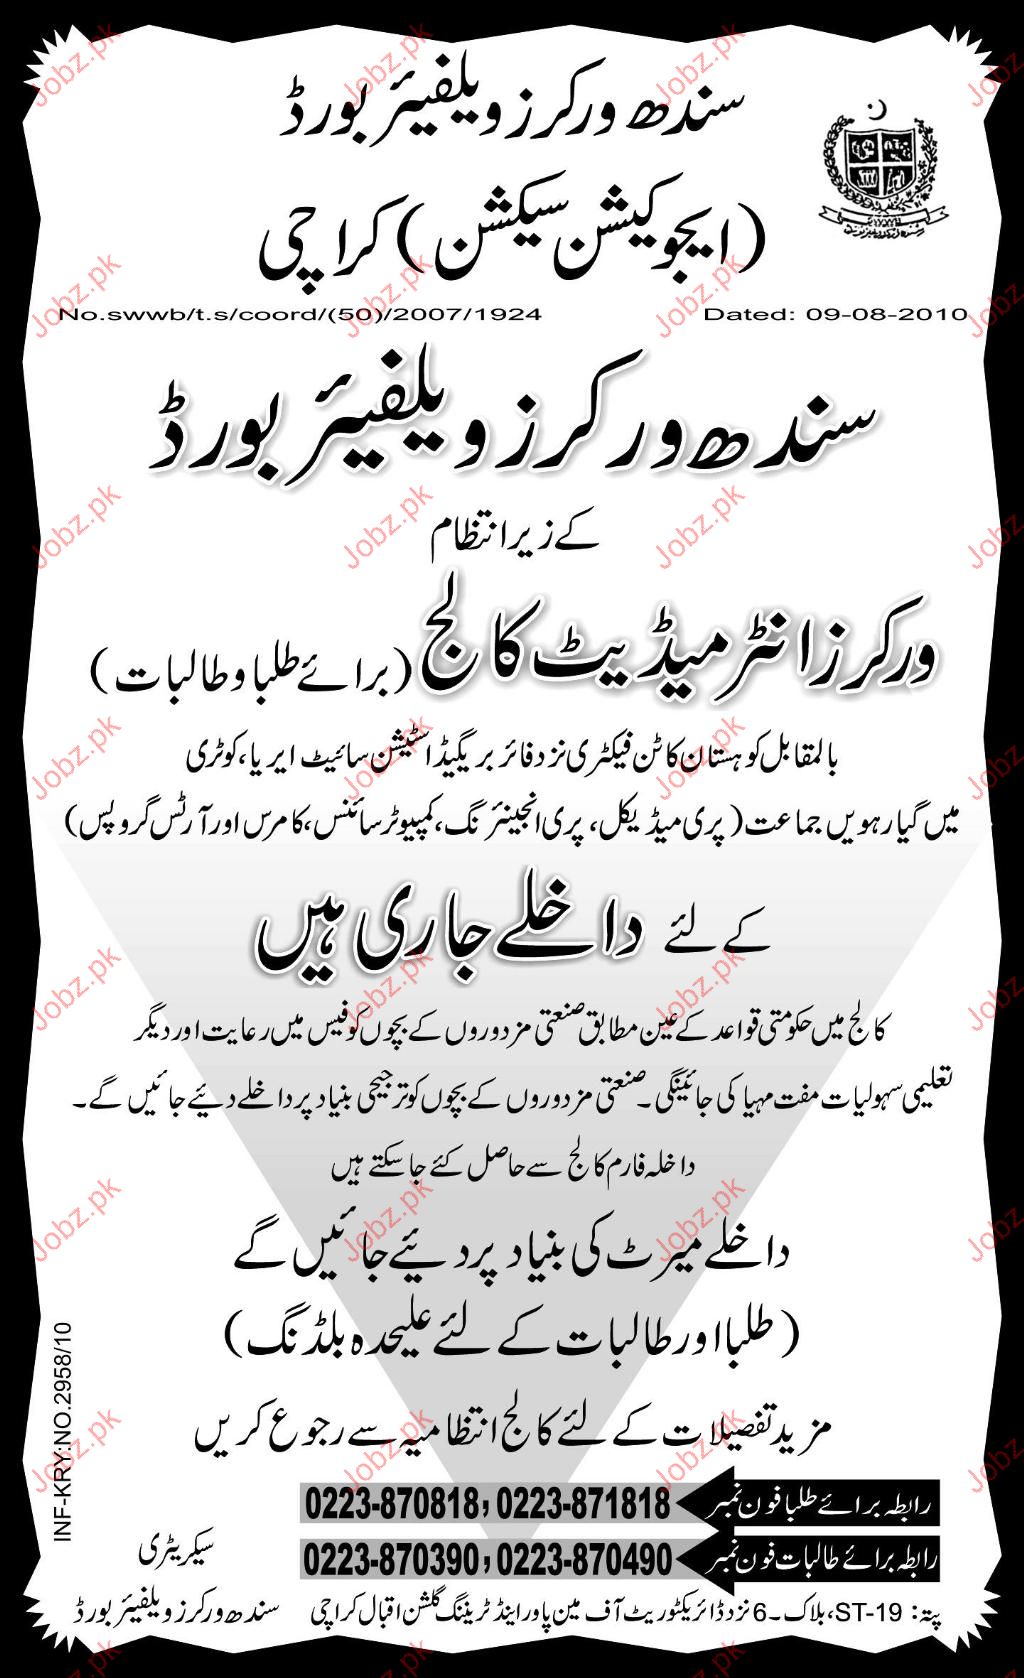 سندھ ورکرز ویلفیئر بورڈ
(ایجوکیشن سیکشن) کراچی
No.swwb/t.s/coord/(50)/2007/1924 Dated: 09-08-2010
سندھ ورکرز ویلفیئر بورڈ
کے زیر انتظام
ورکرز انٹرمیڈیٹ کالج (برائے طلبا و طالبات)
بالمقابل کوہستان کاٹن فیکٹری نزد فائر بریگیڈ اسٹیشن سائیٹ ایریا، کوٹری
میں گیارہویں جماعت (پری میڈیکل، پری انجینئرنگ، کمپیوٹر سائنس، کامرس اور آرٹس گروپس)
کے لئے داخلے جاری ہیں
کالج میں حکومتی قواعد کے عین مطابق صنعتی مزدوروں کے بچوں کو فیس میں رعایت اور دیگر
تعلیمی سہولیات مفت مہیا کی جائینگی۔ صنعتی مزدوروں کے بچوں کو ترجیحی بنیاد پر داخلے دیئے جائیں گے۔
داخلہ فارم کالج سے حاصل کئے جا سکتے ہیں
داخلے میرٹ کی بنیاد پر دئیے جائیں گے
(طلبا اور طالبات کے لئے علیحدہ بلڈنگ)
مزید تفصیلات کے لئے کالج انتظامیہ سے رجوع کریں
رابطہ برائے طلبا فون نمبر 0223-871818، 0223-870818
رابطہ برائے طالبات فون نمبر 0223-870490، 0223-870390
سیکریٹری
پتہ: ST-19، بلاک۔6 نزد ڈائریکٹوریٹ آف مین پاور اینڈ ٹریننگ گلشن اقبال کراچی سندھ ورکرز ویلفیئر بورڈ
INF-KRY:NO.2958/10
Jobz.pk